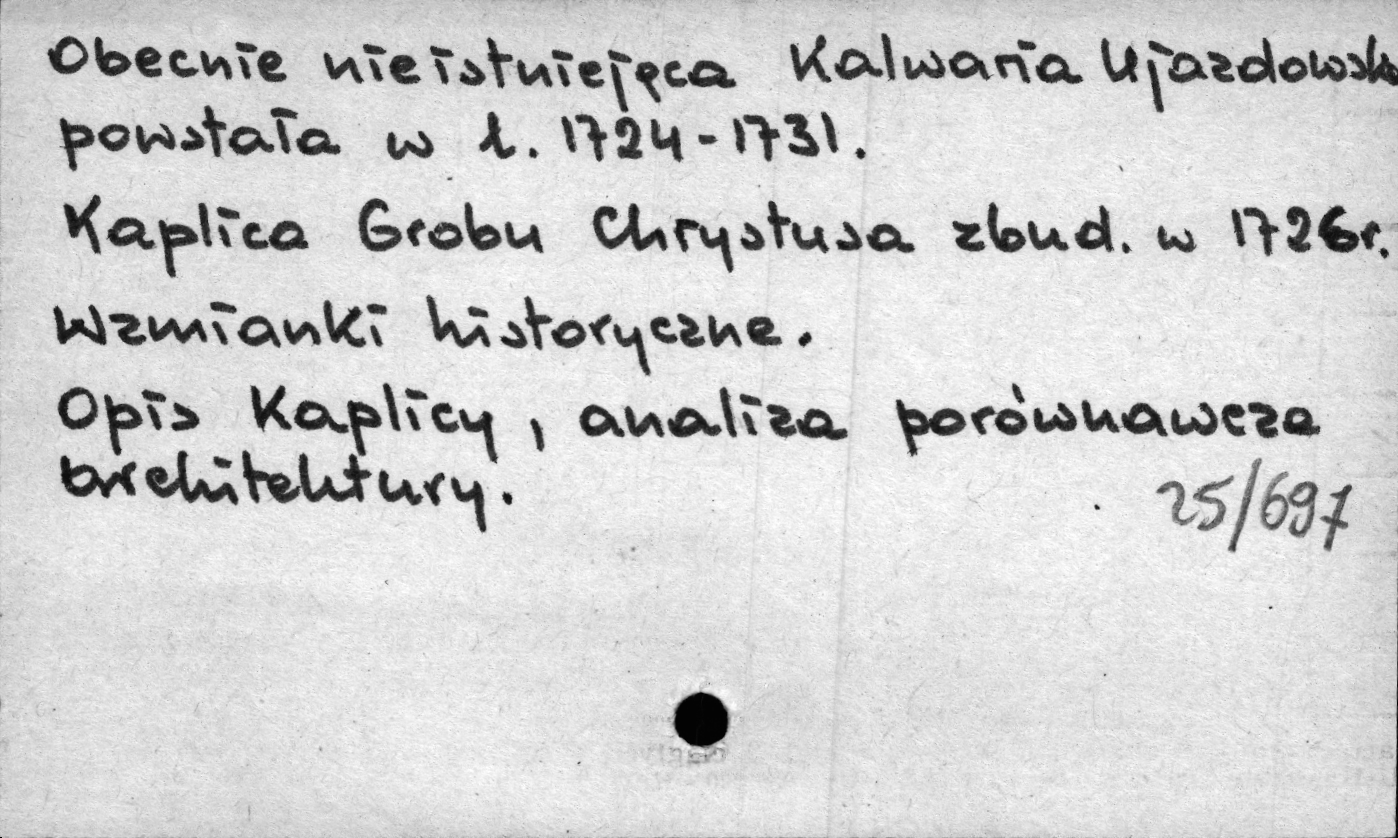 Obecnie nieistniejąca Kalwaria Ujazdowska
powstała w l. 1724-1731.
Kaplica Grobu Chrystusa zbud. w 1726r.
Wzmianki historyczne.
Opis Kaplicy, analiza porównawcza
architektury.
25/697